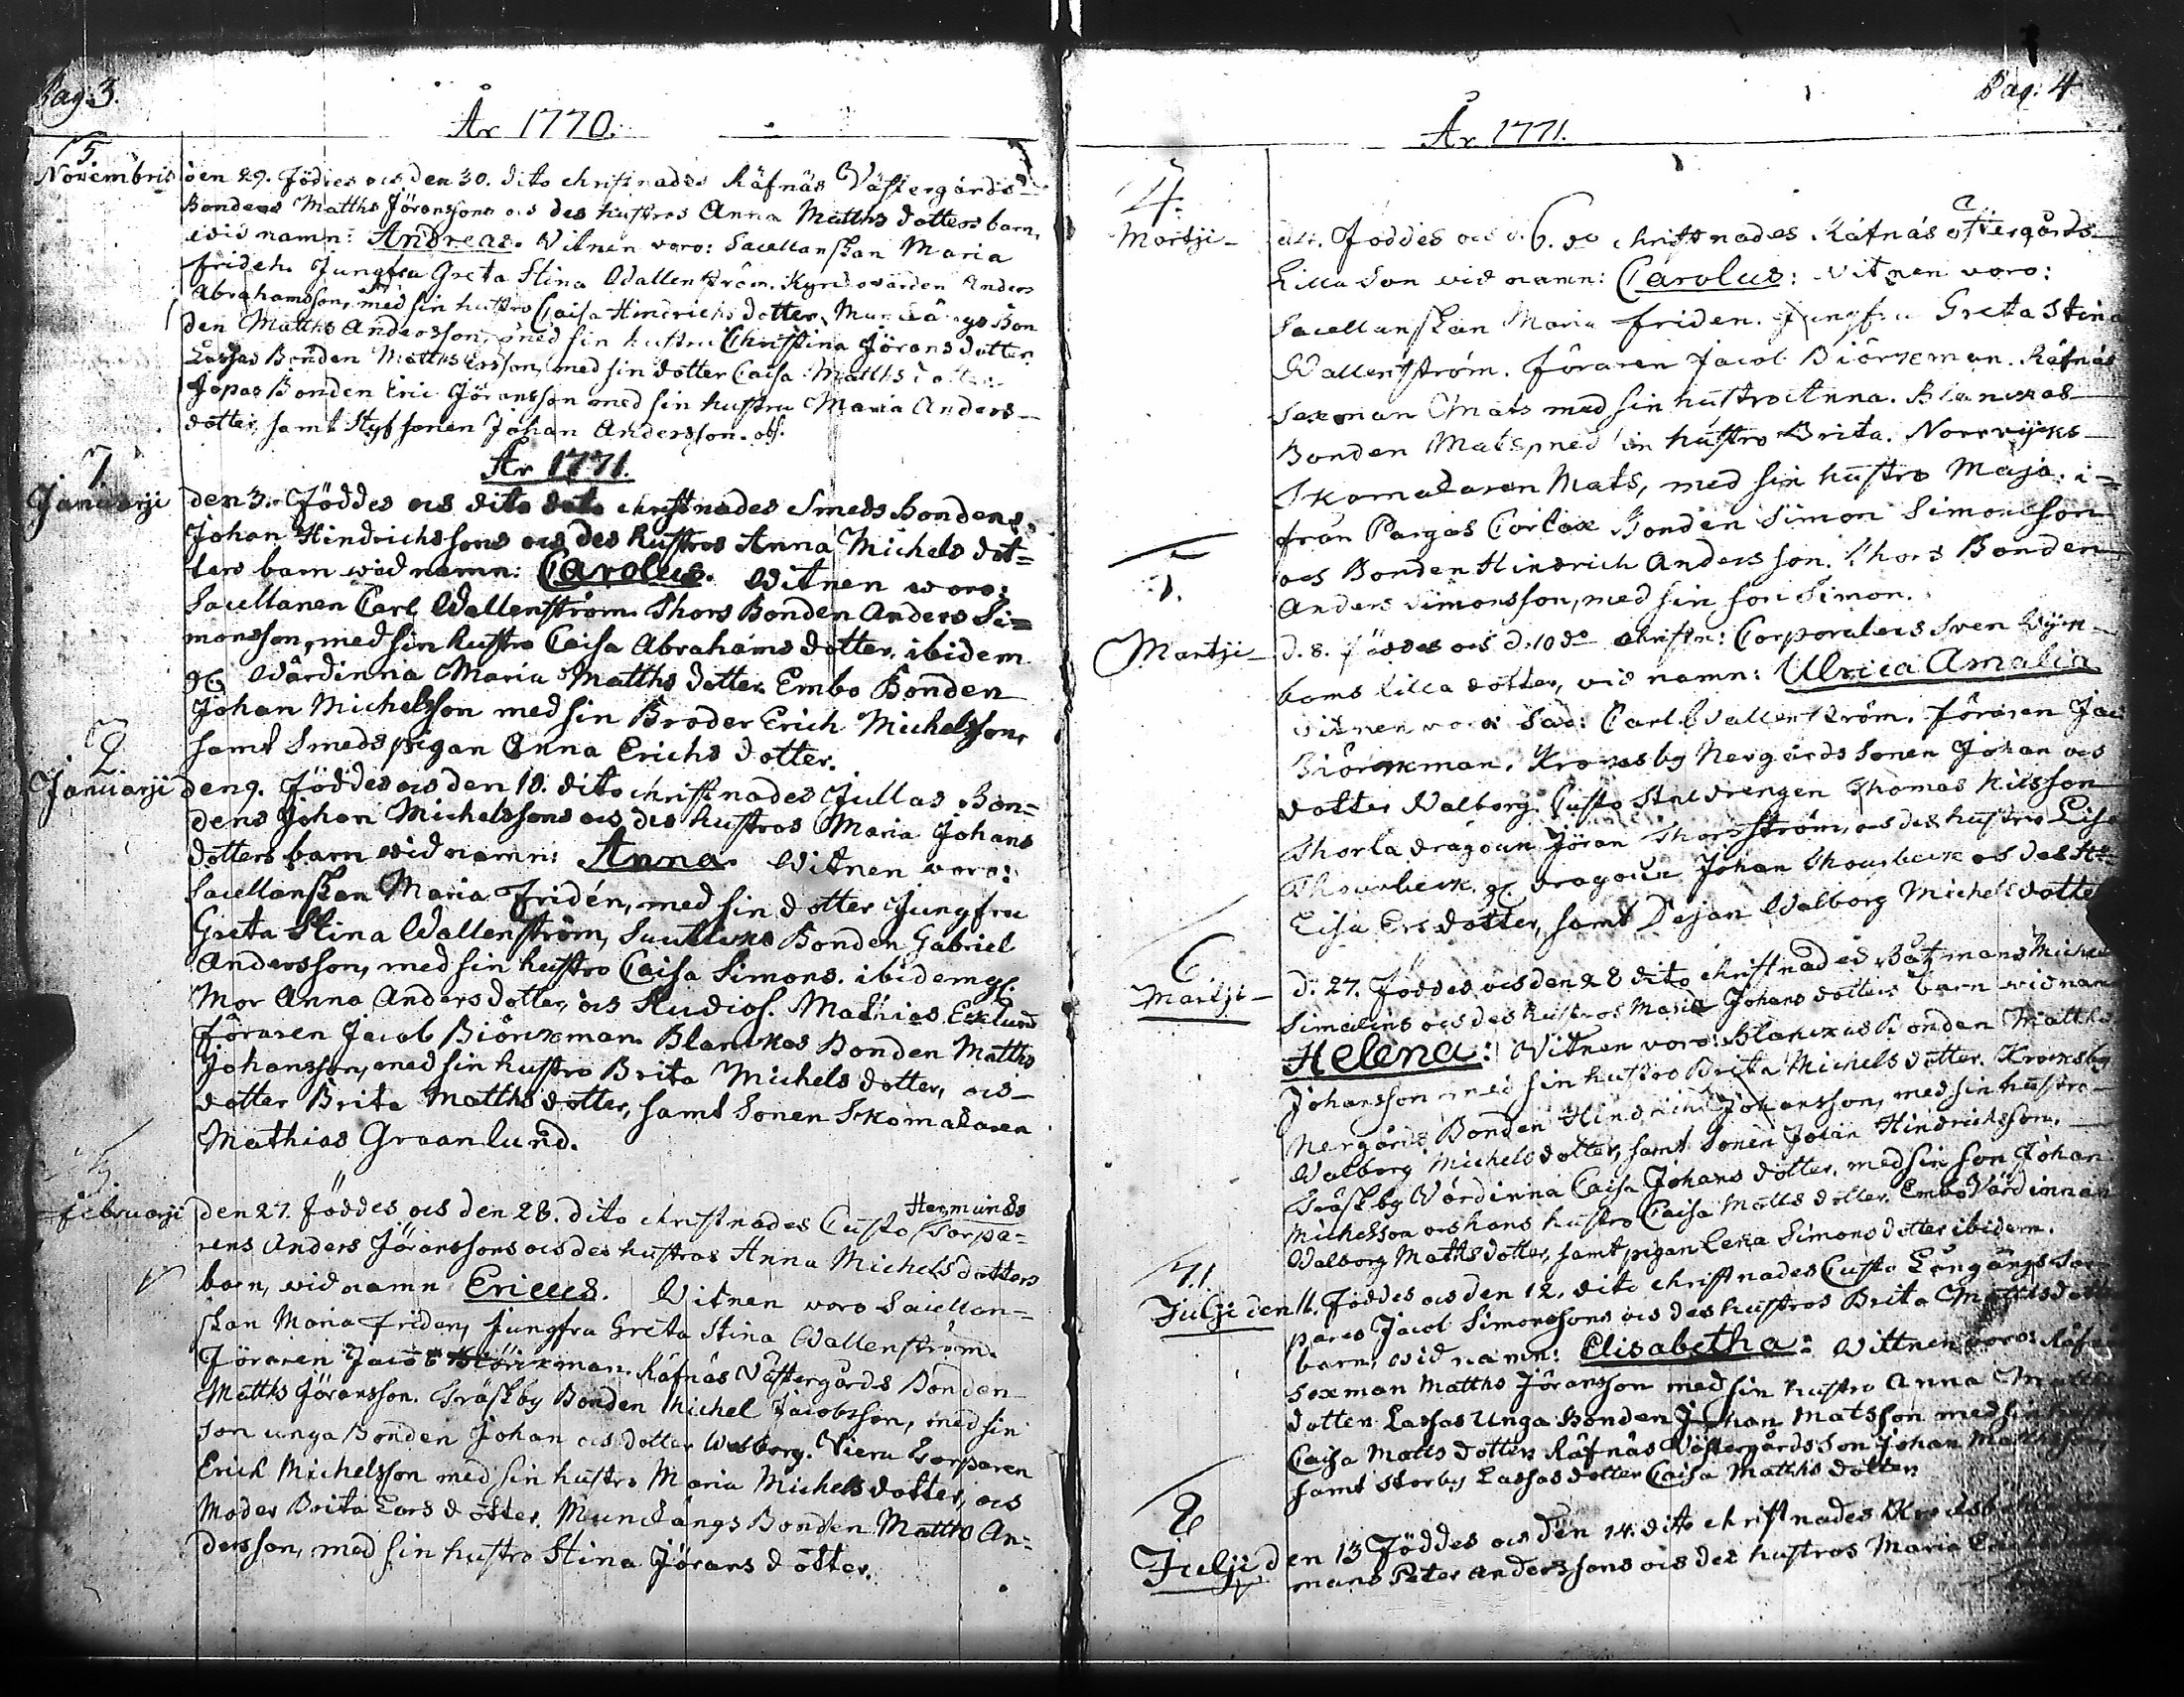 Pag: 3.
År 1770.
15.
Novembris
den 29. Föddes och den 30. dito christnades Räfnäs Västergårds
Bondens Matths Jöranssons och des hustros Anna Matths dotters barn,
wid namn: Andreas. Vitnen voro: Sacellanskan Maria
Friden. Jungfru Greta Stina Wallenström. Kyrckovärden Anders
Abrahamsson, med sin hustro Caisa Hindrichs dotter.
den Matths Andersson, med sin hustru Christina Jörans dotter.
Lassas Bonden Matths Ersson, med sin dotter Caisa Matths dotter
Jopas Bonden Eric Jöransson med sin hustru Maria Anders
dotter, samt Styfsonen Johan Andersson.
År 1771.
1.
Januarji
den 3. Föddes och dito dato christnades Smeds Bondens
Johan Hindrichssons och des hustros Anna Michels dot=
ters barn wid namn: Carolus. Witnen woro:
Sacellanen Carl Wallenström. Thors Bonden Anders Si=
monsson, med sin hustro Caisa Abrahams dotter. ibidem
gl. Wärdinna Maria Matths dotter. Embo Bonden
Johan Michelsson med sin Broder Erich Michelsson,
samt Smeds pigan Anna Erichs dotter.
2.
Januarji
den 9. Föddes och den 10. dito christnades Jullas Bon=
dens Johan Michelssons och des hustros Maria Johans
dotters barn wid namn: Anna. Witnen voro:
Sacellanskan Maria Fridén, med sin dotter Jungfru
Greta Stina Wallenström, Bonden Gabriel
Andersson, med sin hustro Caisa Simons. ibidem gl.
Mor Anna Anders dotter, och Studios. Mathias Ecklund
Föraren Jacob Biörckman. Blanckas Bonden Matths
Johansson, med sin hustro Brita Michels dotter, och
dotter Brita Matths dotter, samt Sonen Skomakaren
Mathias Graanlund.
3.
Februarji
den 27. Föddes och den 28. dito christnades Custo Hermunds Torpa=
rens Anders Jöranssons och des hustros Anna Michels dotters
barn, vid namn Ericus. Vitnen voro Sacellan=
skan Maria Friden, Jungfru Greta Stina Wallenström.
Föraren Jacob Biörckman. Räfnäs Västergårds Bonden
Matths Jöransson. Gräskby Bonden Michel Jacobsson, med sin
son unga Bonden Johan och dotter Walborg. Torparen
Erick Michelsson med sin hustro Maria Michels dotter, och
Moder Brita Lars dotter. Munckängs Bonden Matths An=
dersson, med sin hustro Stina Jörans dotter.
Pag: 4
År 1771.
4.
Martji
d. 4. Föddes och d. 6. do christnades Räfnäs östergårds
Lilla Son vid namn: Carolus: Vitnen voro:
Sacellanskan Maria Friden. Jungfru Greta Stina
Wallenström. Föraren Jacob Biörckman. Räfnäs
Sexman Mats med sin hustro Anna. Blanckas
Bonden Mats, med sin hustro Brita. Norrvijks
Skomakaren Mats, med sin hustro Maja. i=
från Pargas Cortax Bonden Simon Simonsson
och Bonden Hindrich Andersson. Thors Bonden
Anders Simonsson, med sin son Simon.
Martji
d. 8. föddes och d. 10 do christn: Corporalens Sven Wijck
boms lilla dotter, vid namn: Ulrica Amalia
Vitnen voro: Sac: Carl Wallenström. Föraren Jac
Biörckman. Krocksby Nergårds Sonen Johan och
dotter Walborg. Custo Staldrengen Thomas Nilsson
Thorla dragoun Jöran Thorsström, och des hustro Lisa
dragoun Johan och des
Lisa Ers dotter, samt Pejan Walborg Michels dotter
6
Martji
d. 27. Föddes och den 28 dito christnades Båtzmans Michel
Simalins och des hustros Maria Johans dotters barn vid nam
Helena: Vitnen voro: Blanckas Bonden Matths
Johansson med sin hustro Brita Michels dotter. Krocksby
Nergårds Bonden Hindrich Johansson, med sin hustro
Walborg Michels dotter, samt Sonen Johan Hindrichsson.
Gräskby Värdinna Caisa Johans dotter, med sin son Johan
Michelsson och hans hustro Caisa Matts dotter. Embo Värdinnan
Walborg Maths dotter, samt pigan Lena Simons dotter ibidem.
7.
Julji
den 11. Föddes och den 12. dito christnades Custo Långängs Tor
pares Jacob Simonssons och des hustros Brita Matts dotters
barn, vid namn: Elisabetha: Vittnen voro: Räfnäs
Sexman Matths Jöransson med sin hustro Anna Matths
dotter. Lassas Unga Bonden Johan Matsson med sin hustro
Caisa Matts dotter. Räfnäs Västergårds Son Johan
samt Storby Lassas dotter Caisa Matths dotter.
8
Julji
den 13 Föddes och den 14. dito christnades
mans Peter Anderssons och des hustros Maria